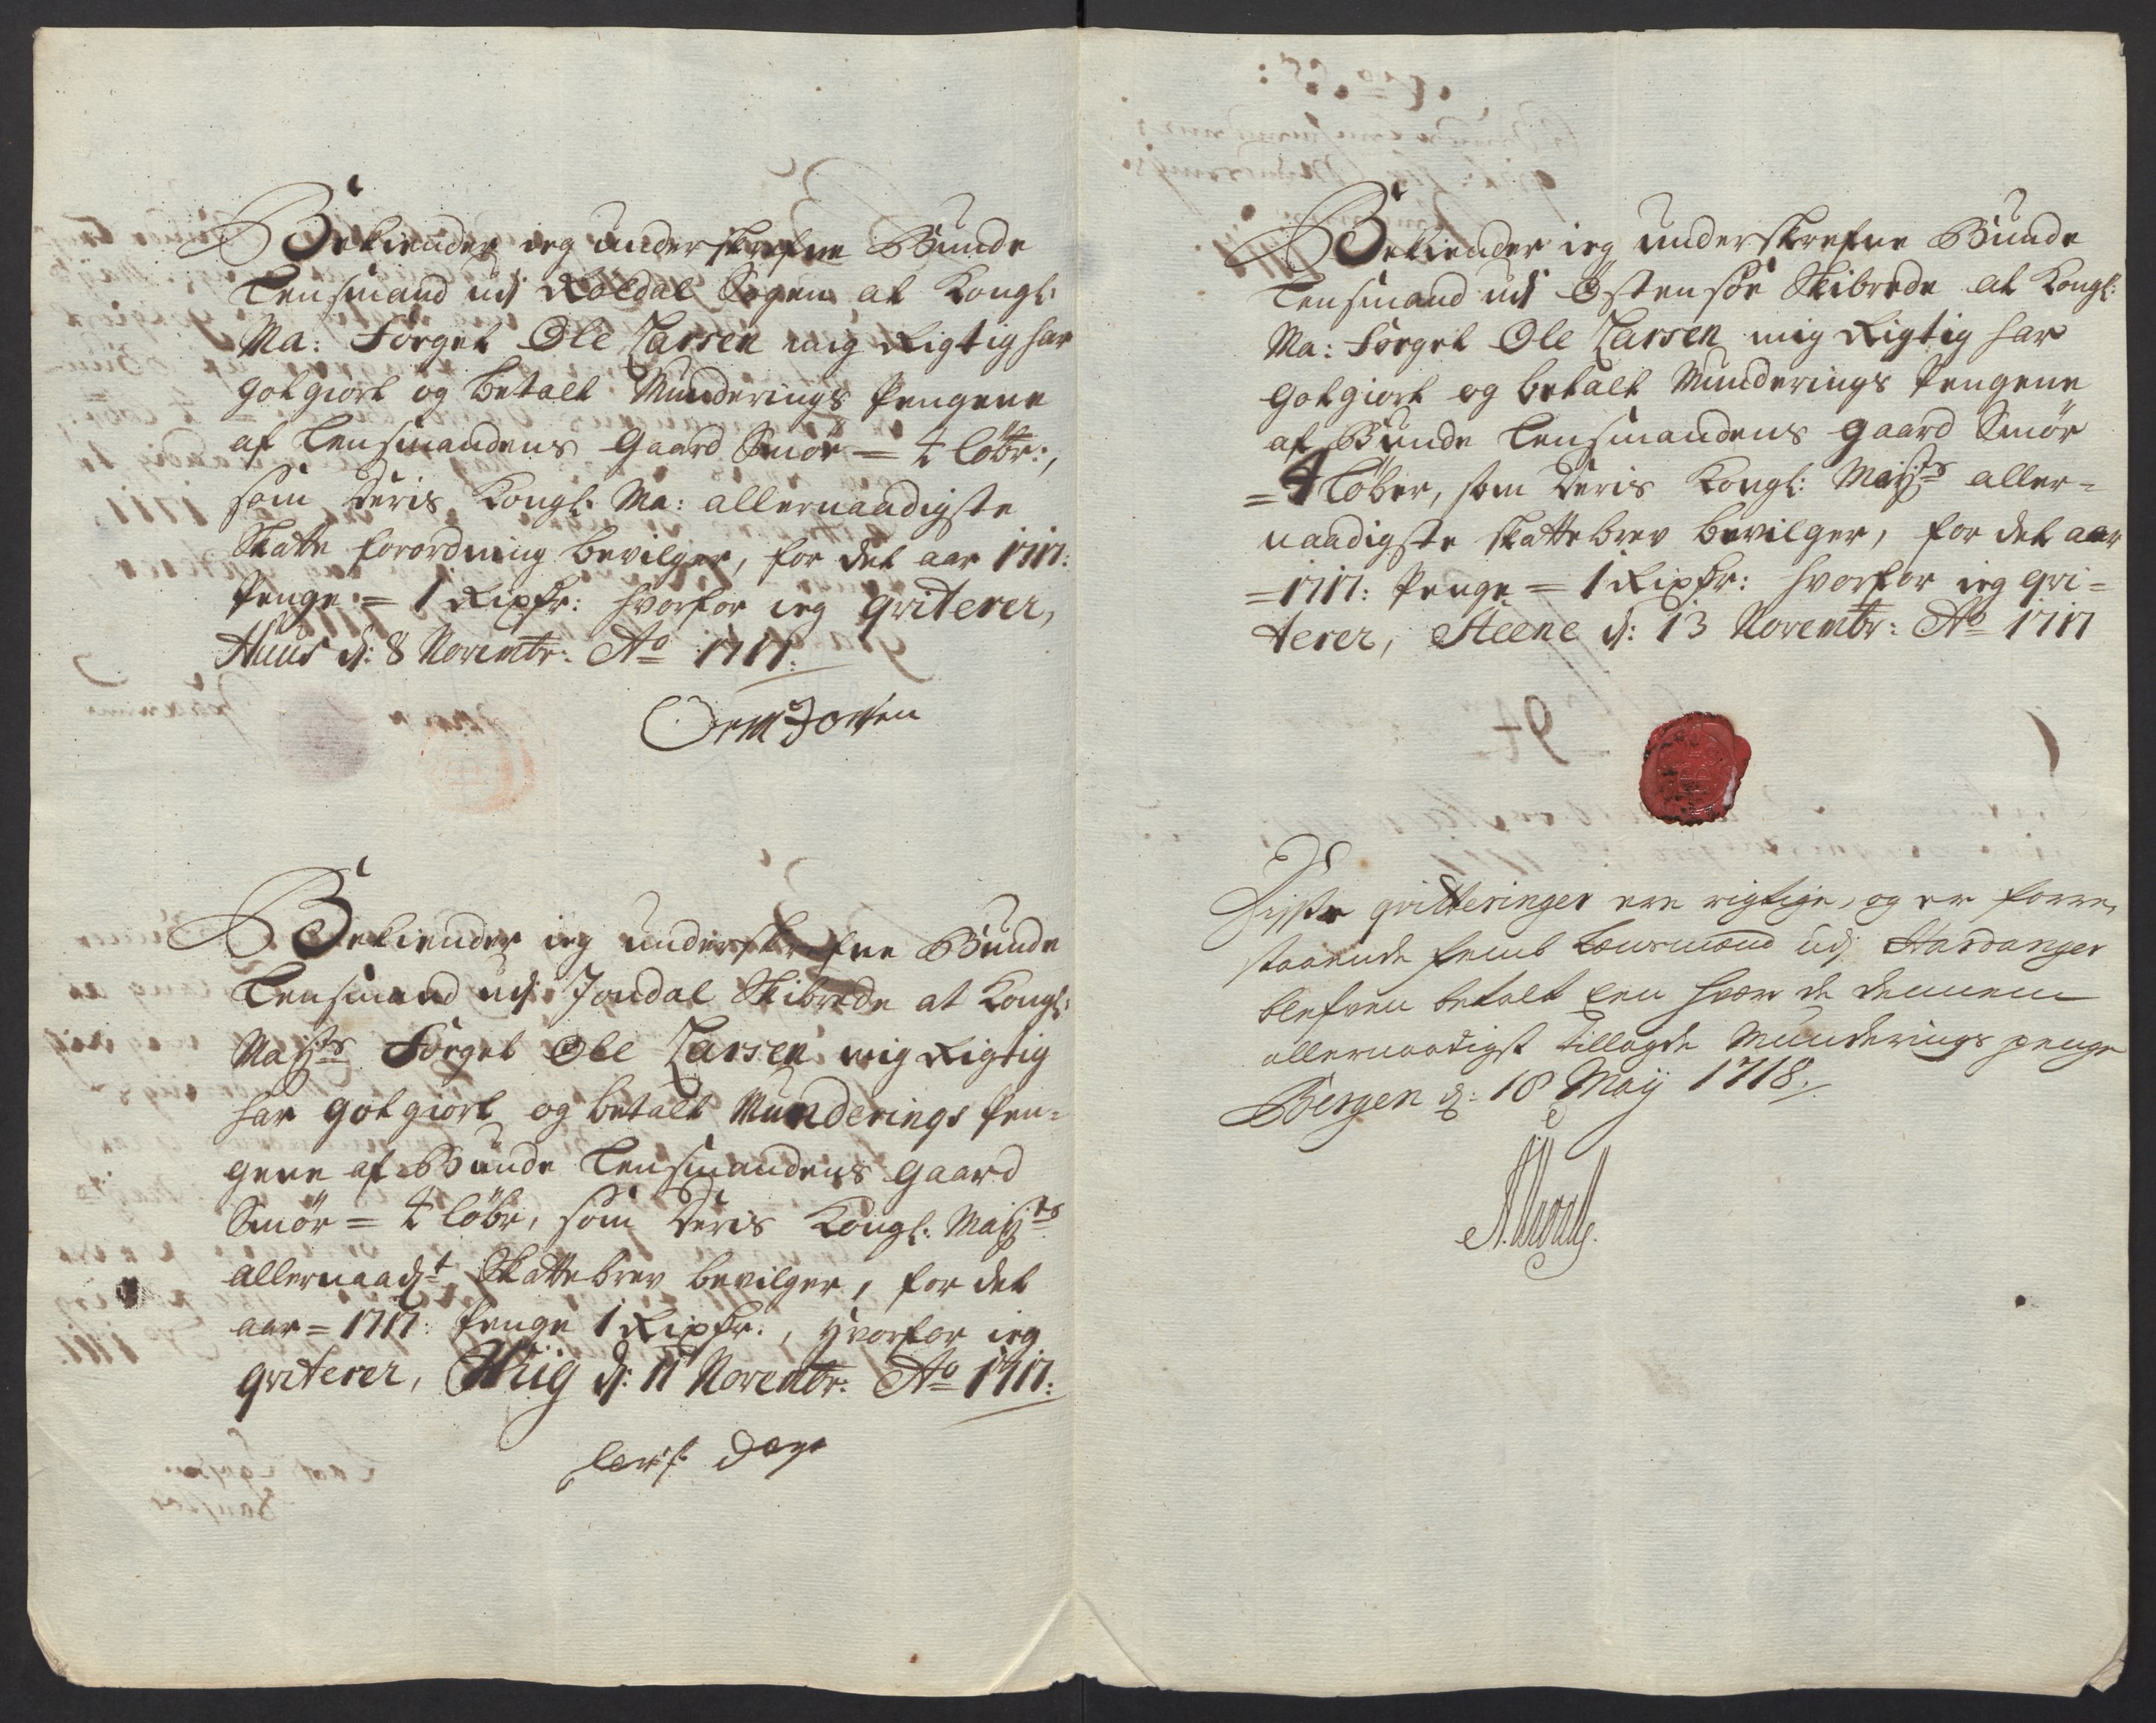 Bekiender ieg underskrefne Bunde
Lensmand udj Röldal Sogen at Kongl:
Ma: Foeget Ole Larsen mig Rigtig har
gotgiort og betalt Munderings Pengene
af Lensmandens gaard Smör = 4 löbr:,
som deris Kongl: Ma: allernaadigste
Skatte forordning bevilger, for det aar 1717:
Penge = 1 Rixdr: hvorfor ieg qviterer,
Huus d: 8 Novembr: Ao 1717:
Orm
Bekiender ieg underskrefne Bunde
Lensmand udj Jondal Skibrede at Kongl:
Mayts Foeget Ole Larsen mig Rigtig
har gotgiort og betalt Munderings Pen=
gene af Bunde Lensmandens gaard
Smör = 4 löbr, som deris Kongl: Mayts
allernaadt Skattebrev bevilger, for det
aar = 1717: Penge 1 Rixdr:, hvorfor ieg
qviterer, Wiig d: 11 Novembr: Ao 1717:
Bekiender ieg underskrefne Bunde
Lensmand udj Östensöe Skibrede at Kongl:
Ma: Foeget Ole Larsen mig Rigtig har
gotgiort og betalt Munderings Pengene
af Bunde Lensmandens gaard Smör
= 4 Löber, som deris Kongl: Mayts aller=
naadigste skattebrev bevilger, for det aar
= 1717: Penge = 1 Rixdr: hvorfor ieg qvi=
terer, Steene d: 13 Novembr: Ao 1717
Disse qvitteringer ere rigtige, og er forre
staaende femb Lensmænd udj Hardanger
blefven betalt hver de dennem
allernaadigst tillagde Munderings penge
Bergen d: 18 Maij 1718.